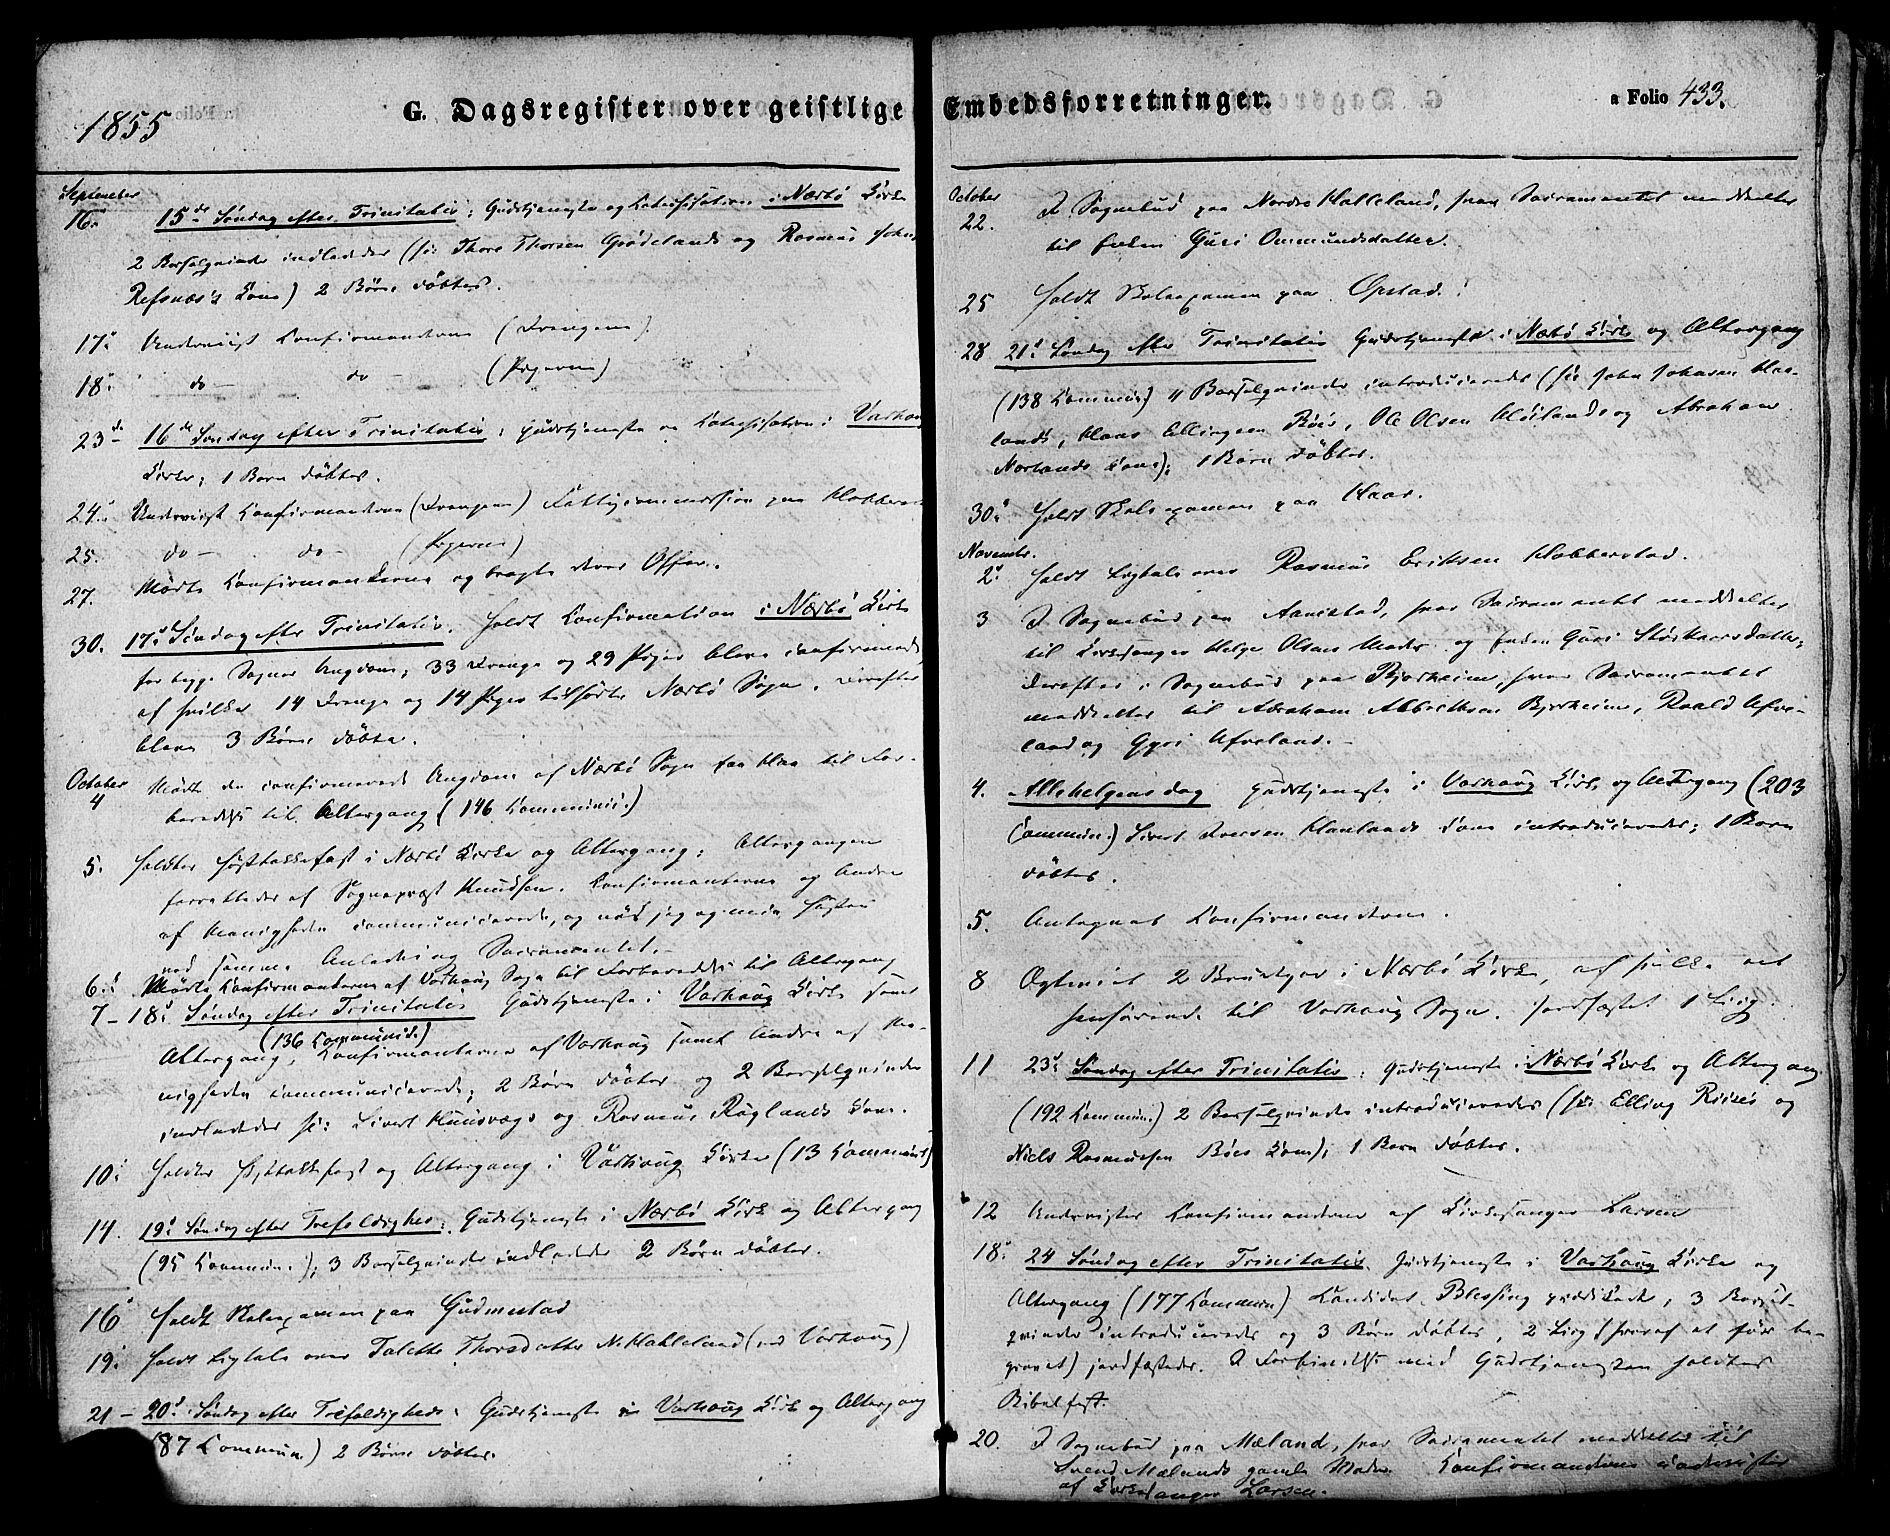 1855
G. Dagsregister over geistlige Embedsforretninger.
a Folio 433.
September
16. 15de Søndag efter Trinitatis; Gudstjeneste og Katechisation i Nærbø Kirke
2 Barselqvinder indledede (ɔ: Thore Thorsen Grødelands og Rasmus Johns.
Refsnæs's Kone) 2 Børn døbtes.
17. Underviist Konfirmanderne (Drengene)
18. do — do — (Pigerne)
23de 16de Søndag efter Trinitatis; Gudstjeneste og Katechisation i Varhoug
Kirke; 1 Barn døbtes.
24. Underviist Konfirmanderne (Drengene) Fattigcommission paa
25. do — do — (Pigerne)
27. Mødte Konfirmanderne og bragte deres Offer.
30. 17de Søndag efter Trinitatis. Holdt Konfirmation i Nærbø Kirke
for begge Sognes Ungdom; 33 Drenge og 29 Piger bleve confirmerede,
af hvilke 14 Drenge og 14 Piger tilhørte Nærbø Sogn. Derefter
bleve 3 Børn døbte.
October
4 Mødte de confirmerede Ungdom af Nærbø Sogn til For-
beredelse til Altergang (146 Communic.)
5. Holdtes Høsttakkefest i Nærbø Kirke og Altergang; Altergangen
forrettedes af Sognepræst Knudsen. Konfirmanterne og Andre
af Menigheden communicerede, og nød jeg og min
ved samme Anledning Sacramentet.—
6. Mødte Konfirmanterne af Varhoug Sogn til Forberedelse til Altergang
7 – 18. Søndag efter Trinitatis Gudstjeneste i Varhoug Kirke samt
(136 Communic.)
Altergang; Konfirmanterne af Varhoug samt Andre af Me-
nigheden communicerede; 2 Børn døbtes og 2 Barselqvinder
indledede ɔ: Sivert Hunsvægs og Rasmus Røglands Kone.
10. Holdtes Høsttakkefest og Altergang i Varhoug Kirke (13 Communic.)
14. 19. Søndag efter Trefoldighed; Gudstjeneste i Nærbø Kirke og Altergang
(95 Commun.); 3 Barselqvinder indledede 2 Børn døbtes.
16 Holdt Skoleexamen paa Gudmestad
19. Holdt Ligtale over Talette Thorsdatter N. Halleland (ved Varhoug)
21 – 20. Søndag efter Trefoldighed; Gudstjeneste i Varhoug Kirke og Altergang
(87 Commun.) 2 Børn døbtes.
October
22. I Sognebud paa Nordre Halleland, hvor Sacramentet meddeeltes
til Enken Guri Ommundsdatter.
25 Holdt Skoleexamen paa Opstad.
28 21. Søndag efter Trinitatis Gudstjeneste i Nærbø Kirke og Altergang
(138 Commun.) 4 Barselqvinder introducerede (ɔ: John Johnsen Haa-
lands, Hans Ellingsen Bøes, Ole Olsen Høilands og Abraham
Norlands Kone); 1 Barn døbtes.
30. Holdt Skoleexamen paa Haar.
November.
2. Holdt Ligtale over Rasmus Eriksen Hobberstad.
3 I Sognebud paa Aanestad, hvor Sacramentet meddeeltes
til Kirkesanger Helge Olsens Moder og Enken Guri Størkersdatter;
derefter i Sognebud paa Bjorheim, hvor Sacramentet
meddeeltes til Abraham Albretksen Bjorheim, Roald Afve-
land og Gyri Afveland.—
4. Allehelgensdag Gudstjeneste i Varhoug Kirke og Altergang (203
Commun.) Sivert Iversen Haalands Kone introduceredes; 1 Barn
døbtes.
5. Antegnet Konfirmanderne.
8 Ægteviet 2 Brudepar i Nærbø Kirke, af hvilke et
henhørende til Varhoug Sogn. Jordfæstet 1 Liig.
11 23. Søndag efter Trinitatis; Gudstjeneste i Nærbø Kirke og Altergang
(192 Commun.) 2 Barselqvinder introducerede (ɔ: Elling Riises og
Niels Rasmussen Bøes Kone); 1 Barn døbtes.
12 Undervistes Konfirmanderne af Kirkesanger Larsen
18. 24 Søndag efter Trinitatis. Gudstjeneste i Varhoug Kirke og
Altergang (177 Commun.) Candidat Blessing prædikede; 3 Barsel-
qvinder introducerede og 3 Børn døbtes, 2 Liig (hvoraf et før be-
gravet) jordfæstede. I Forbindelse med Gudstjenesten holdtes
Bibelfest.
20. I Sognebud paa Mæland, hvor Sacramentet meddeeltes til
Svend Mælands gamle Moder. Konfirmanderne undervistes
af Kirkesanger Larsen.